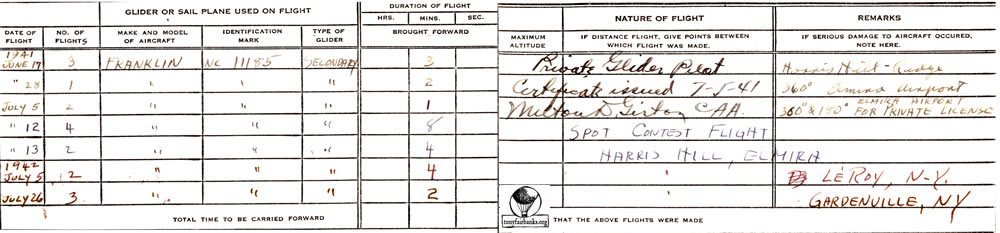 GLIDER OR SAIL PLANE USED ON FLIGHT
DURATION OF FLIGHT
HRS. MINS. SEC.
DATE OF FLIGHT NO. OF FLIGHTS MAKE AND MODEL OF AIRCRAFT IDENTIFICATION MARK TYPE OF GLIDER BROUGHT FORWARD
1941
JUNE 17 3 FRANKLIN NC 11185 SECONDARY 3
" 28 1 " " " 2
JULY 5 2 " " " 1
" 12 4 " " " 8
" 13 2 " " " 4
1942
JULY 5 2 " " " 4
JULY 26 3 " " " 2
TOTAL TIME TO BE CARRIED FORWARD
NATURE OF FLIGHT REMARKS
MAXIMUM ALTITUDE IF DISTANCE FLIGHT, GIVE POINTS BETWEEN WHICH FLIGHT WAS MADE. IF SERIOUS DAMAGE TO AIRCRAFT OCCURED, NOTE HERE.
Private Glider Pilot Harris Hill - Ridge
Certificate issued 7-5-41 360° Elmira Airport
Milton Girton CAA 360° & 180° ELMIRA AIRPORT FOR PRIVATE LICENSE
SPOT CONTEST FLIGHT
HARRIS HILL, ELMIRA
" LEROY, N-Y.
" GARDENVILLE, NY
tonyfairbanks.org
THAT THE ABOVE FLIGHTS WERE MADE